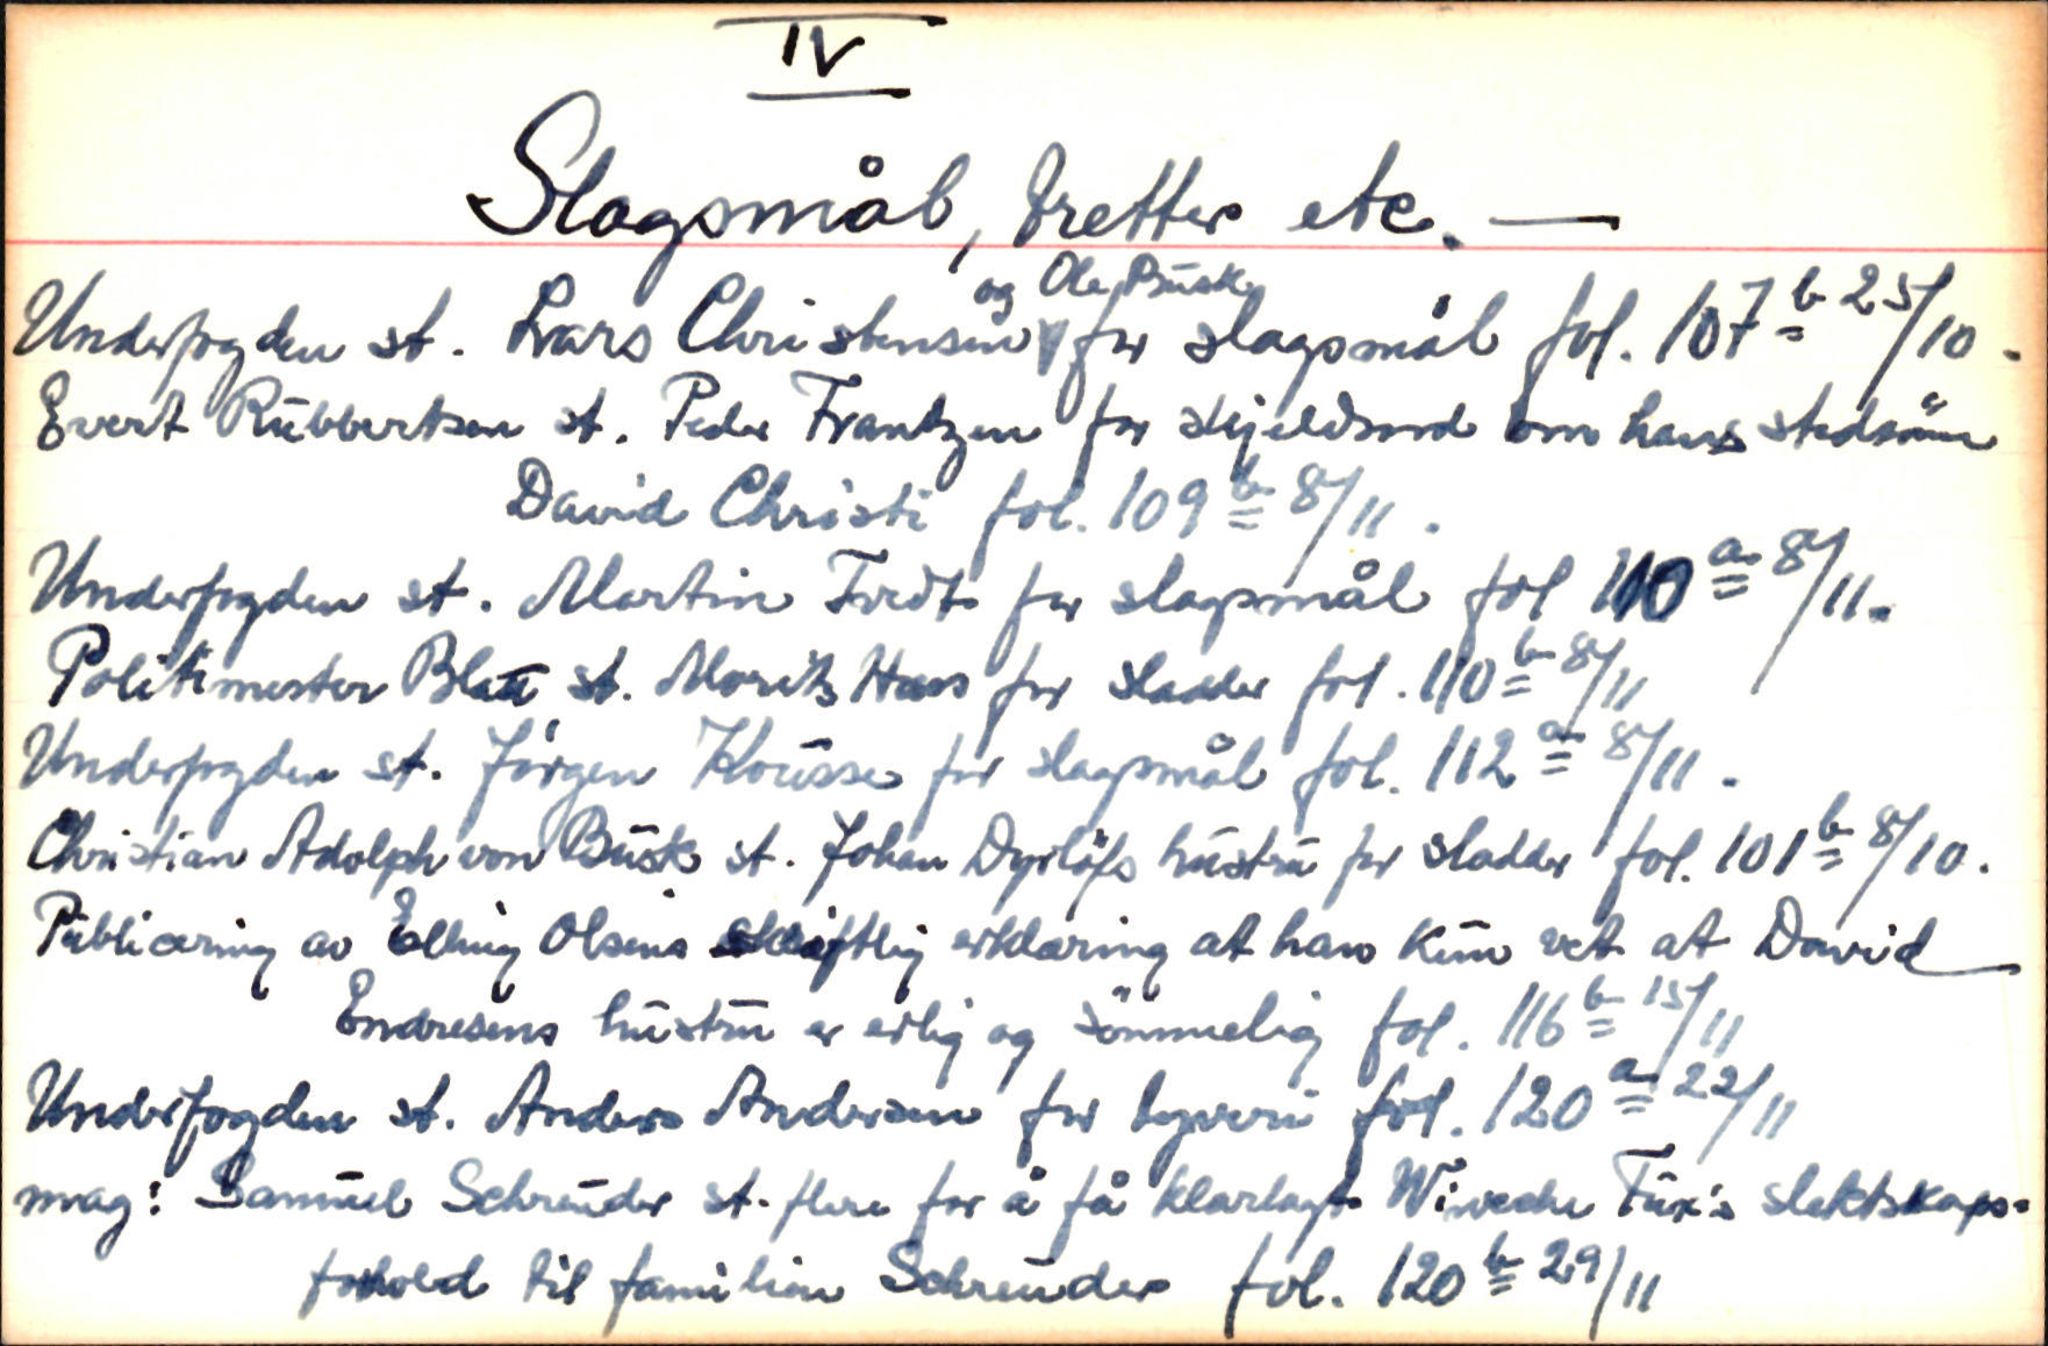 IV
Slagsmål, tretter etc. —
og Ole Busk
Underfogden st. Lars Christensen for slagsmål fol. 107 b 25/10.
Evert Rubbertsen st. Peder Frantzen for skjeldsord om hans stedsönn
David Christi fol. 109 b 8/11.
Underfogden st. Martin for slagsmål fol 110 a 8/11.
Politimester Blau st. Morits Haas for sladder fol. 110 b 8/11
Underfogden st. Jörgen Kousse for slagsmål fol. 112 a 8/11.
Christian Adolph von Busk st. Johan Dyrlöfs hustru for sladder fol. 101 b 8/10.
Publicering av Elling Olsens skriftlig erklæring at han kun vet at David
Endresens hustru er erlig og sömmelig fol. 116 b 15/11
Underfogden st. Anders Andersen for tyveri fol. 120 a 22/11
mag: Samuel Schreuder st. flere for å få klarlagt Wivecke Fux's slektskaps-
forhold til familien Schreuder fol. 120 b 29/11